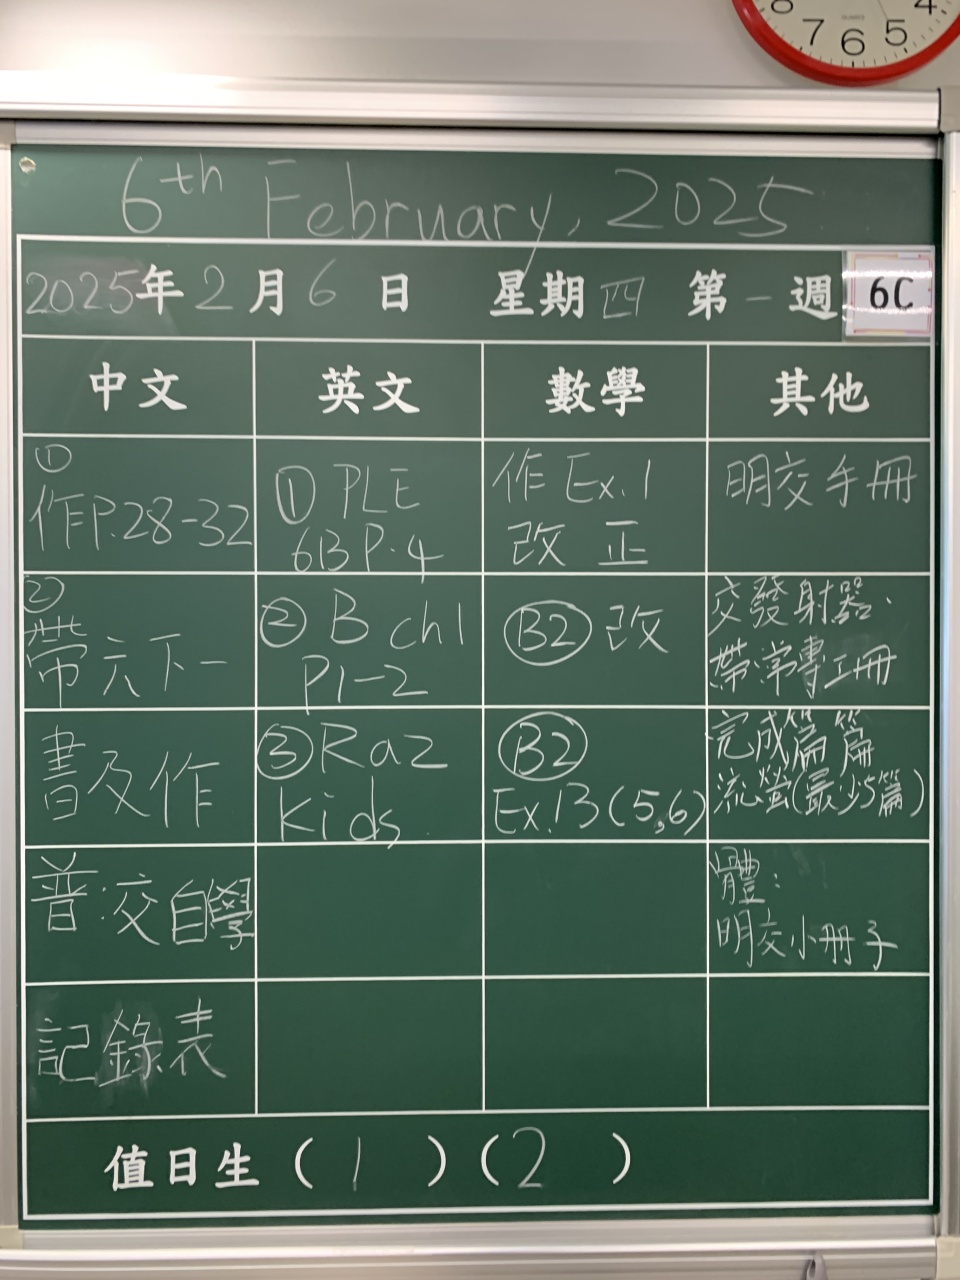 8 7 6 5 4
QUARTZ
6th February, 2025
2025年2月6日 星期四 第一週 6C
中文 英文 數學 其他
①
作P.28-32
②
帶六下一
書及作
普:交自學
記錄表
① PLE
6B P.4
② B ch1
P1-2
③ Raz
Kids
作 Ex.1
改正
B2 改
B2
Ex.13(5,6)
明交手冊
交發射器、
帶常專工冊
完成篇篇
流螢(最少5篇)
體:
明交小冊子
值日生(1)(2)